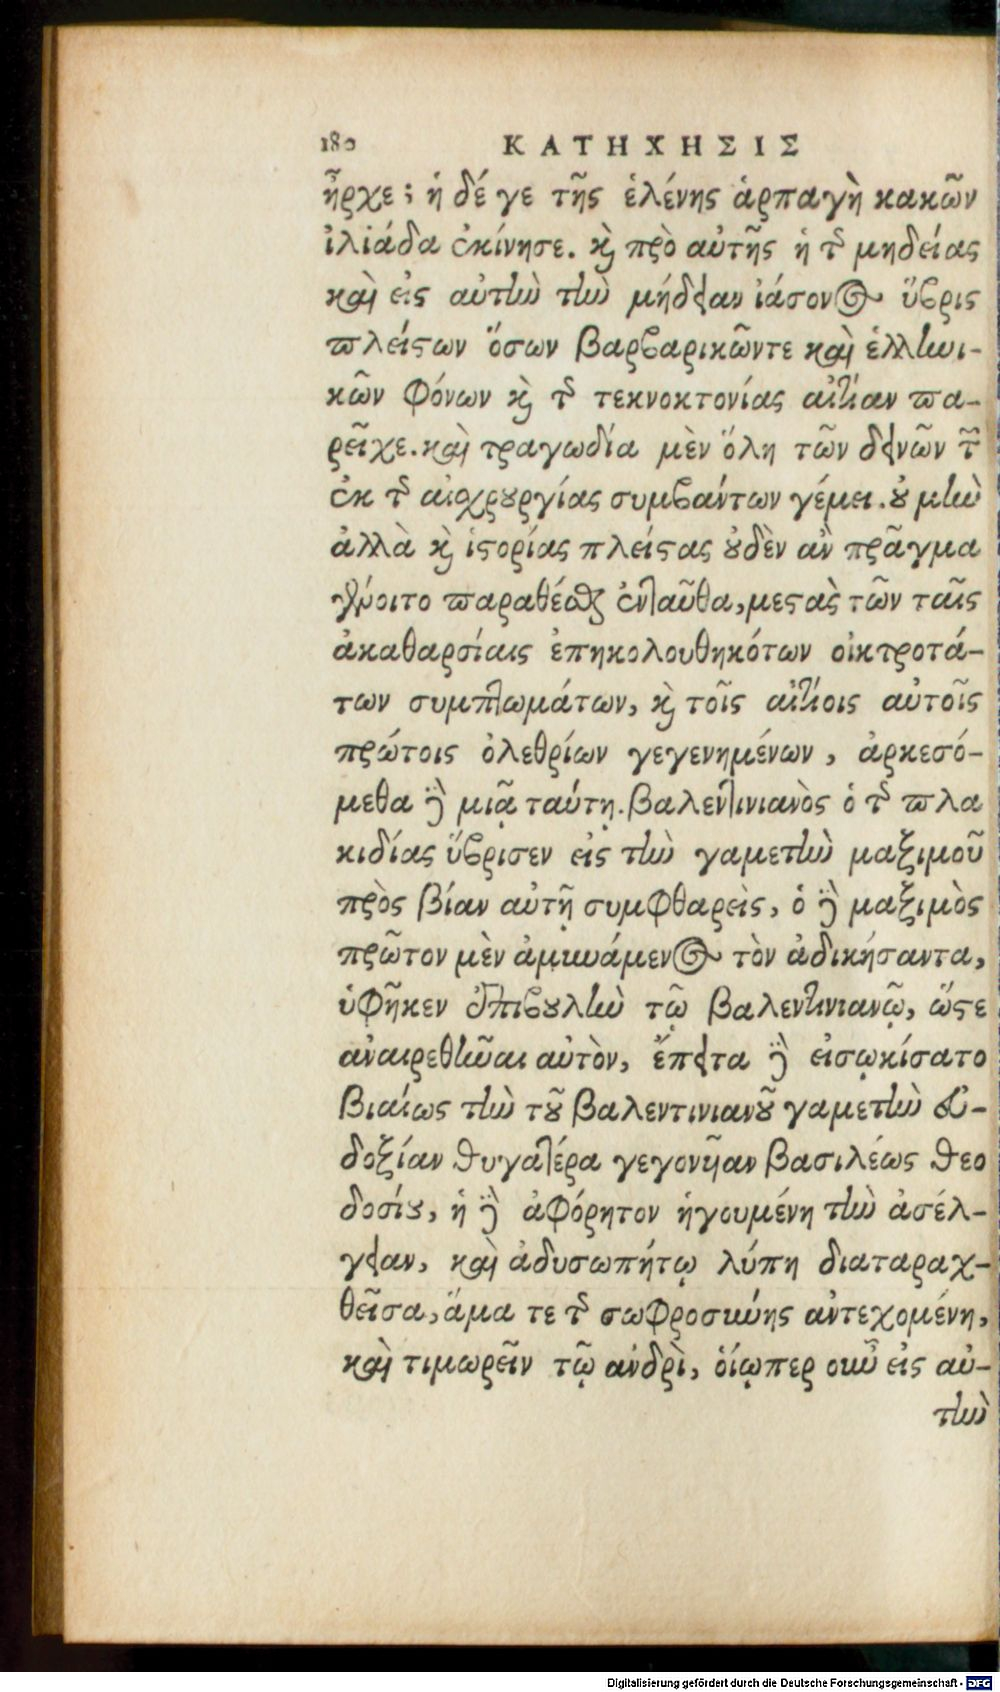 180 ΚΑΤΗΧΗΣΙΣ
ἦρχε; ἡ δέ γε τῆς ἑλένης ἁρπαγὴ κακῶν
ἰλιάδα ἐκίνησε. καὶ πρὸ αὐτῆς ἡ τῆς μηδείας
καὶ εἰς αὐτὴν τὴν μήδειαν ἰάσονος ὕβρις
πλείστων ὅσων βαρβαρικῶντε καὶ ἑλληνι-
κῶν φόνων καὶ τῆς τεκνοκτονίας αἰτίαν πα-
ρεῖχε. καὶ τραγωδία μὲν ὅλη τῶν δεινῶν τῶν
ἐκ τῆς αἰσχρουργίας συμβάντων γέμει. οὐ μὴν
ἀλλὰ καὶ ἱστορίας πλείστας οὐδὲν ἂν πρᾶγμα
γένοιτο παραθέσθαι ἐνταῦθα, μεστὰς τῶν ταῖς
ἀκαθαρσίαις ἐπηκολουθηκότων οἰκτροτά-
των συμπτωμάτων, καὶ τοῖς αἰτίοις αὐτοῖς
πρώτοις ὀλεθρίων γεγενημένων, ἀρκεσό-
μεθα δὲ μιᾷ ταύτῃ. βαλεντινιανὸς ὁ τῆς πλα
κιδίας ὕβρισεν εἰς τὴν γαμετὴν μαξιμοῦ
πρὸς βίαν αὐτῇ συμφθαρεὶς, ὁ δὲ μαξιμὸς
πρῶτον μὲν ἀμυνάμενος τὸν ἀδικήσαντα,
ὑφῆκεν ἐπιβουλὴν τῷ βαλεντινιανῷ, ὥστε
ἀναιρεθῆναι αὐτὸν, ἔπειτα δὲ εἰσῳκίσατο
βιαίως τὴν τοῦ βαλεντινιανοῦ γαμετὴν εὐ-
δοξίαν θυγατέρα γεγονυῖαν βασιλέως θεο
δοσίου, ἡ δὲ ἀφόρητον ἡγουμένη τὴν ἀσέλ-
γειαν, καὶ ἀδυσωπήτῳ λύπῃ διαταραχ-
θεῖσα, ἅμα τε τῆς σωφροσύνης ἀντεχομένη,
καὶ τιμωρεῖν τῷ ἀνδρὶ, οἵῳπερ οὖν εἰς αὐ-
τὴν
Digitalisierung gefördert durch die Deutsche Forschungsgemeinschaft - DFG